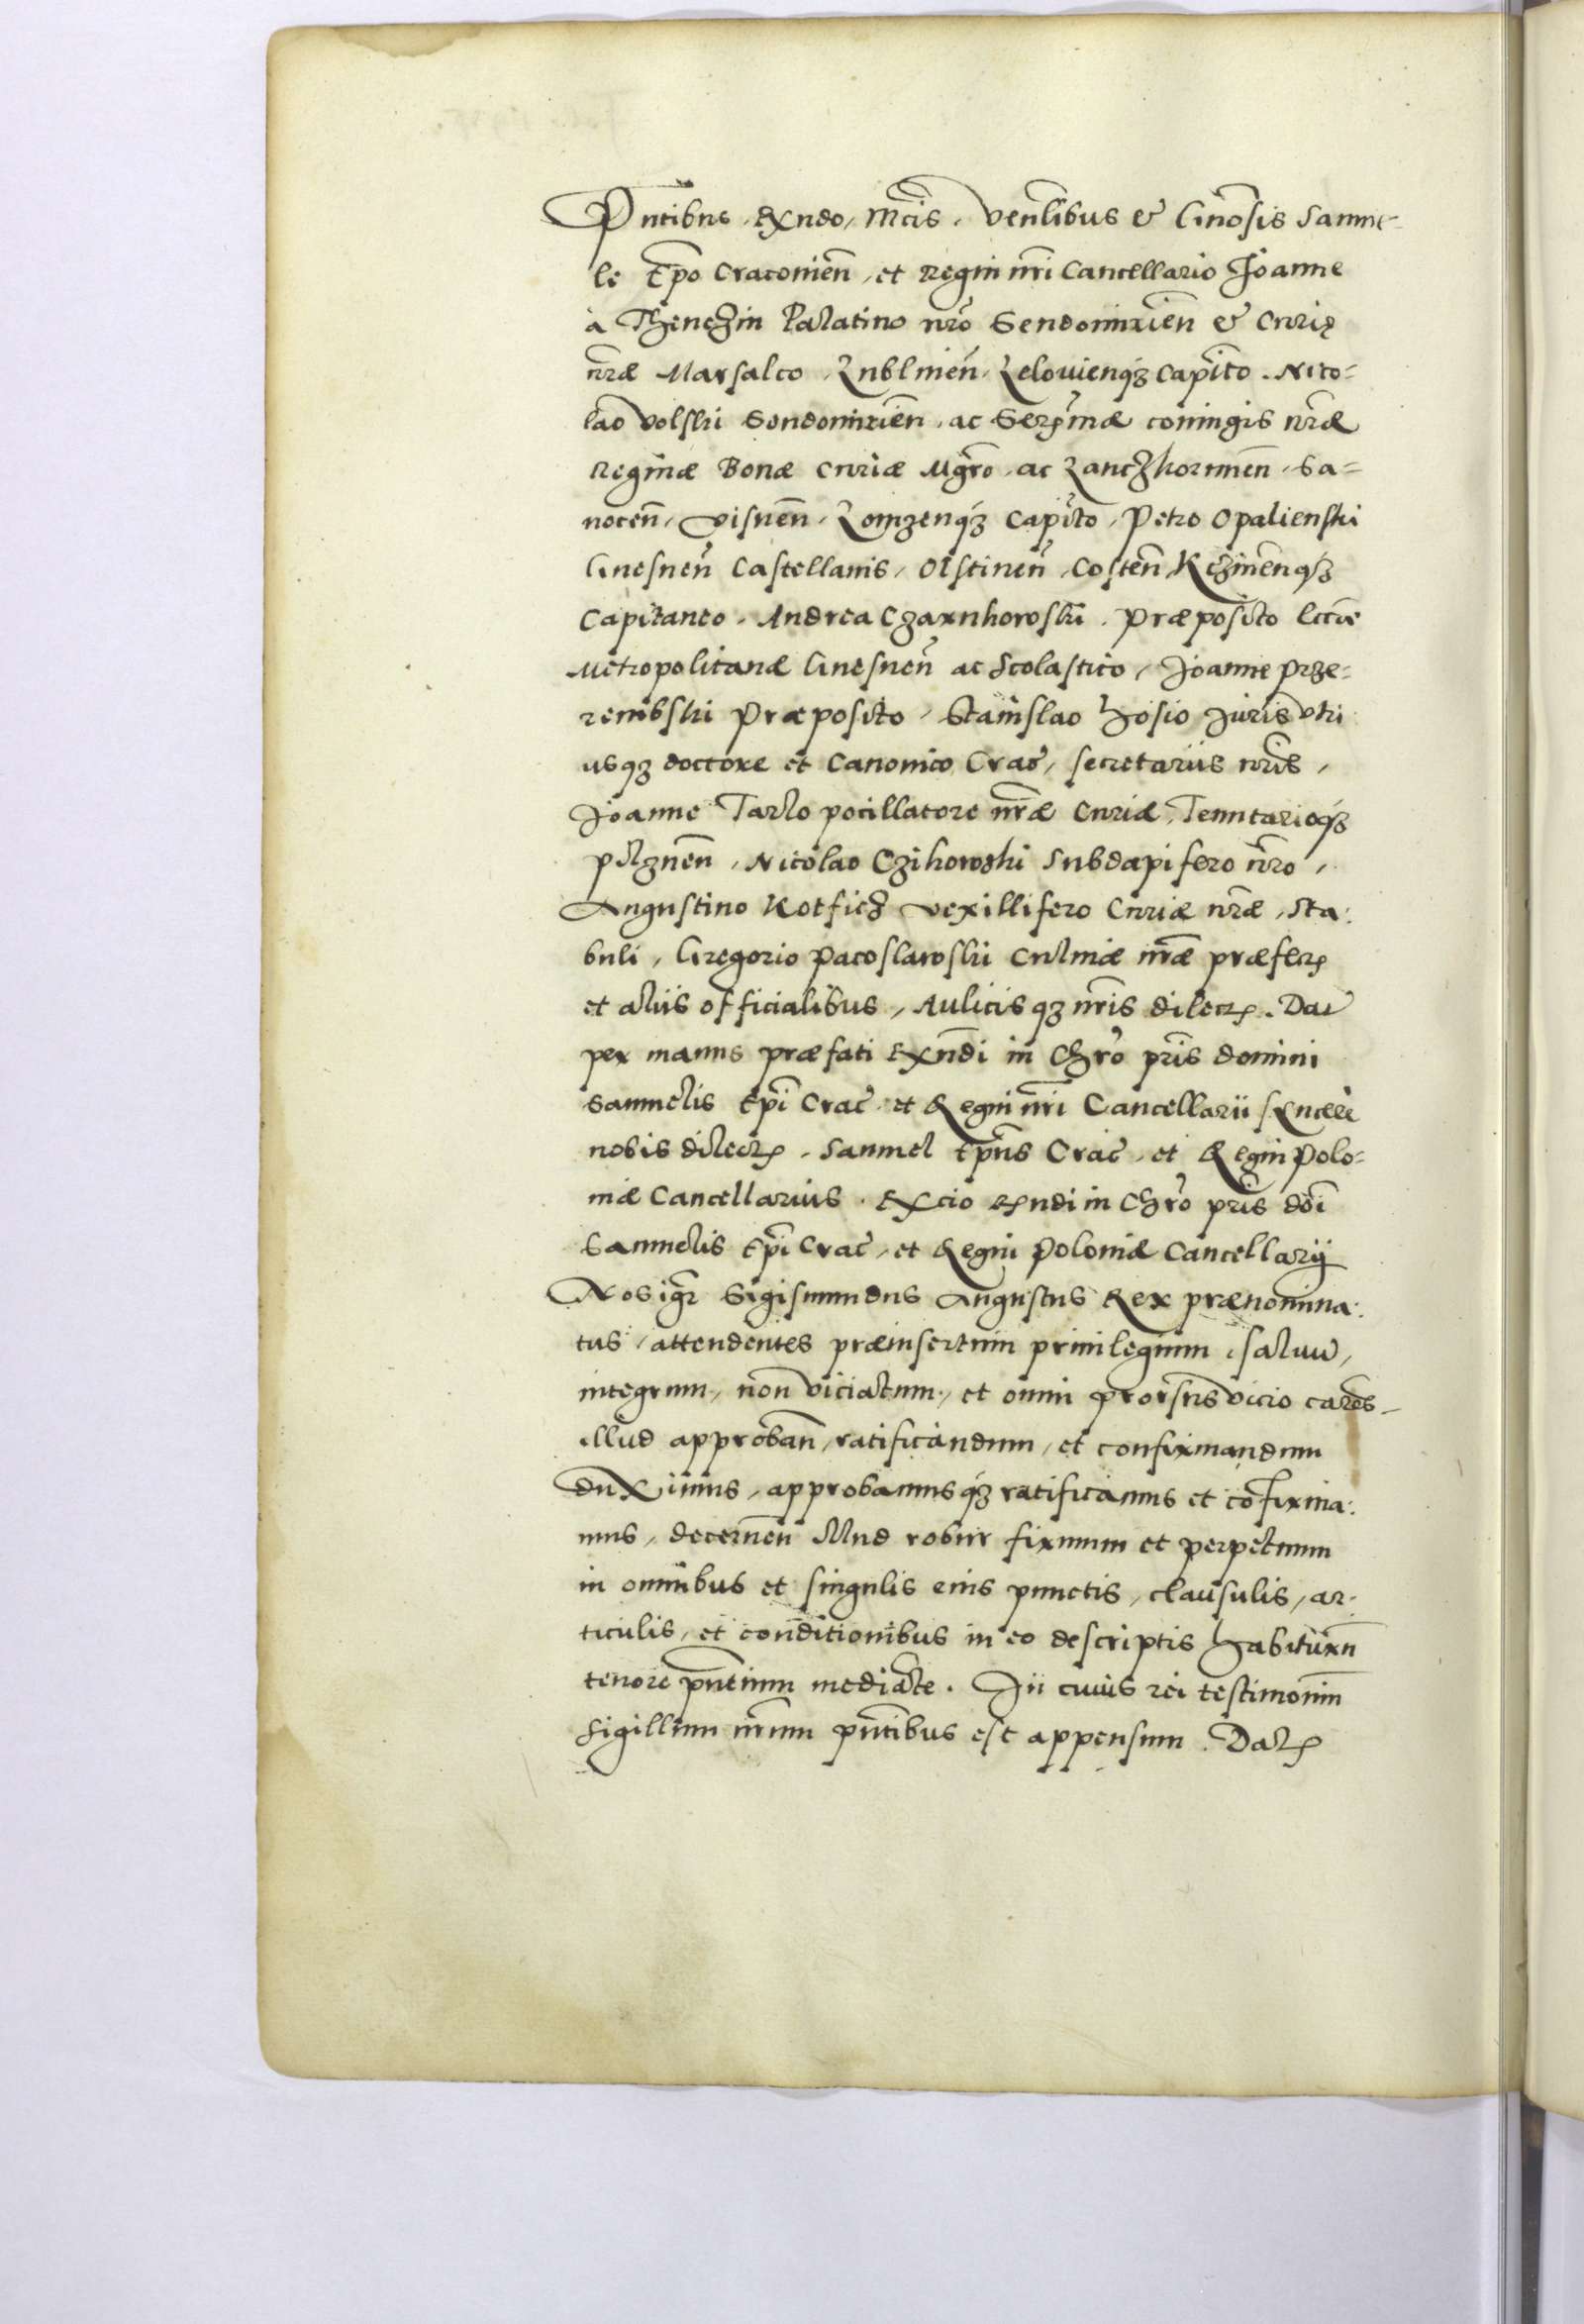 Pntibus Rxndo, Mcis, Venlibus et Gnosis Samue-
le Epo Cracovien, et Regni nri Cancellario Joanne
à Thenczin Palatino nro Sendomirien et Curię
nræ Marsalco, Lublinen, Zelovienqz Capito. Nico-
lao Volski Sendomirien, ac Serxmæ coniugis nræ
Reginæ Bonæ Curiæ Mgro, ac Lanczkorunen, Sa-
nocen, Visnen, Lomzenqz Capito, Petro Opalienski
Gnesnen Castellanis, Olstinen, Costen, Kczinenqz
Capitaneo, Andrea Czarnkowski, Præposito Eccæ
Metropolitanæ Gnesnen ac Scolastico, Joanne Prze-
rembski Præposito, Stanislao Hosio Juris utri
usqz doctore et Canonico Crac, secretariis nris,
Joanne Tarlo pocillatore nræ Curiæ, Tenutarioqz
pilznen, Nicolao Czikowski Subdapifero nro,
Augustino Kotficz vexillifero Curiæ nræ, Sta:
buli, Gregorio Pacoslawski Culinæ nræ præfect
et aliis officialibus, Aulicisqz nris dilect. Dat
per manus præfati Rxndi in Chro pris domini
Samuelis Epi Crac et Regni nri Cancellarii syncere
nobis dilect. Samuel Epus Crac, et Regni Polo-
niæ Cancellarius. Rxcio Rxndi in Chro pris doi
Samuelis Epi Crac, et Regni Poloniæ Cancellarij
Nos igr Sigismundus Augustus Rex prænomina:
tus, attendentes præinsertum privilegium, salvum,
integrum, non viciatum, et omni prorsus vicio carens
illud approban, ratificandum, et confirmandum
duximus, approbamusqz ratificamus et cofirma:
mus, decernen illud robur firmum et perpetuum
in omnibus et singulis eius punctis, clausulis, ar-
ticulis, et conditionibus in eo descriptis habiturn
tenore pntium mediate. In cuius rei testimonim
Sigillum nrum pntibus est appensum. Dat